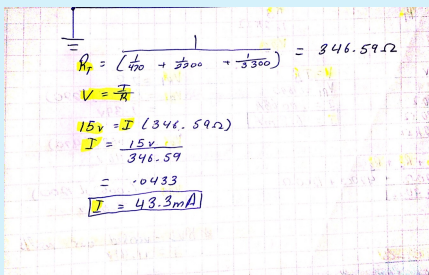 R_T = 1 / (1/470 + 1/2200 + 1/3300) = 346.59Ω
V = I/R
15v = I (346.59Ω)
I = 15v / 346.59
= .0433
I = 43.3mA